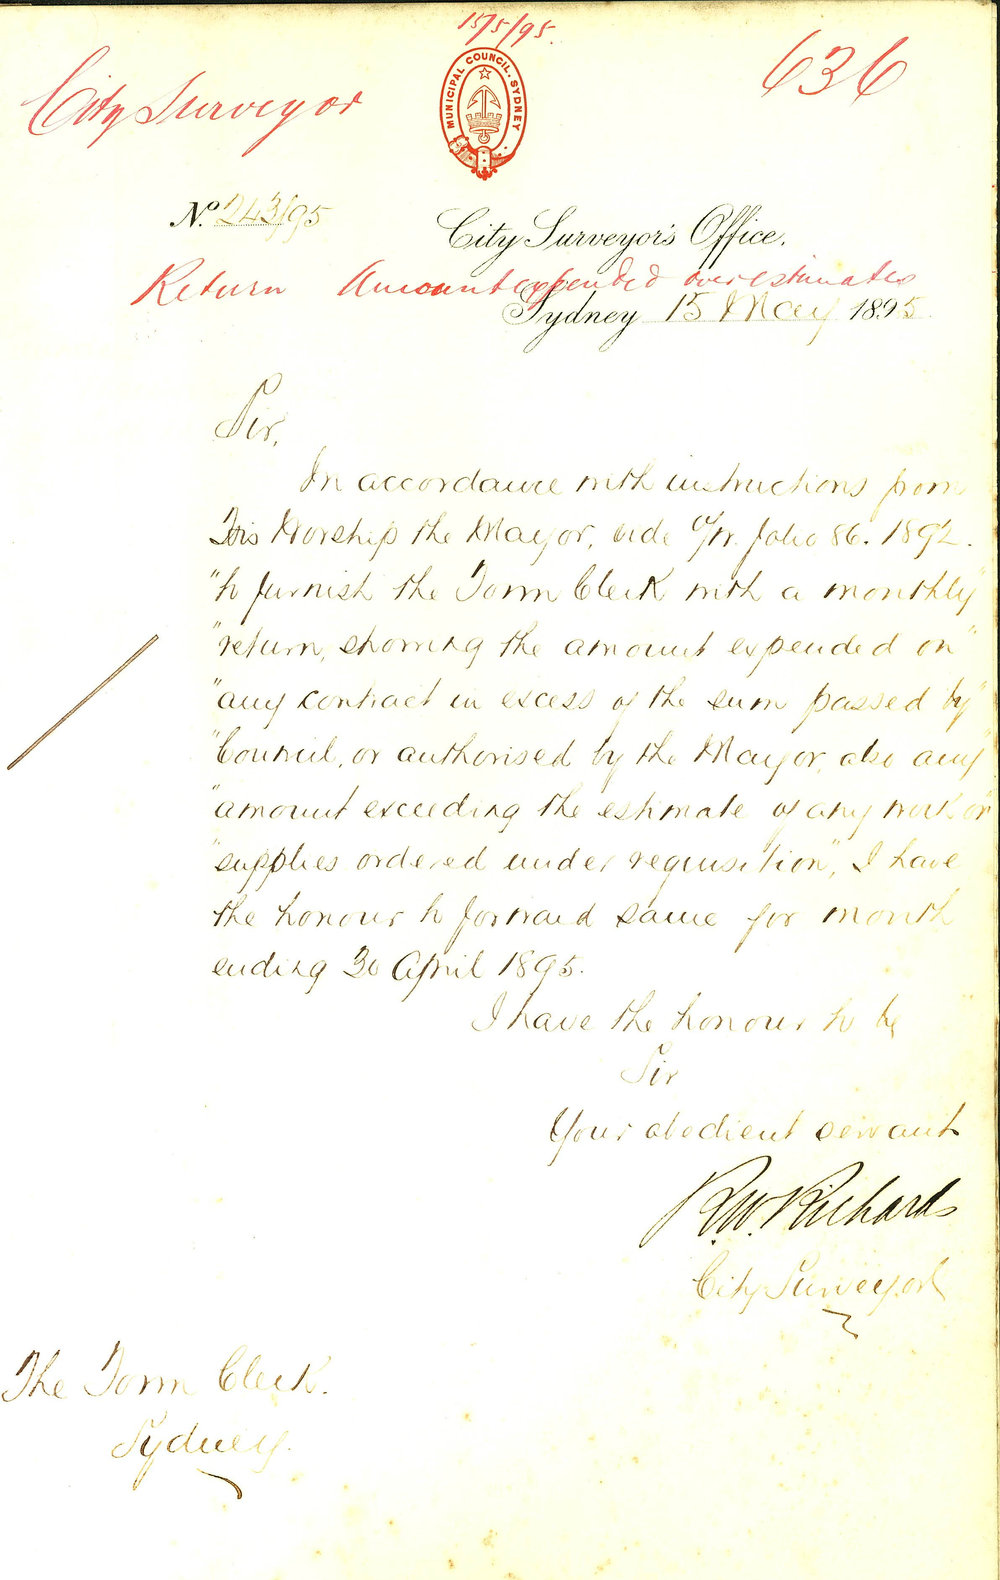 15/5/95.
636
City Surveyor
MUNICIPAL COUNCIL. SYDNEY
No. 243/95
City Surveyor's Office.
Return Amount expended over estimates
Sydney 15 May 1895.
Sir,
In accordance with instructions from
His Worship the Mayor, vide folio 86. 1892.
"to furnish the Town Clerk with a monthly"
"return, showing the amount expended on"
"any contract in excess of the sum passed by"
"Council, or authorised by the Mayor, also any"
"amount exceeding the estimate of any work or"
"supplies ordered under requisition", I have
the honour to forward same for month
ending 30 April 1895.
I have the honour to be
Sir
Your obedient servant
R.W. Richards
City Surveyor
The Town Clerk.
Sydney.